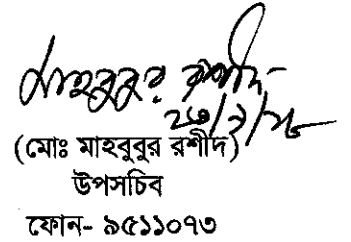 মাহবুবুর রশীদ
(মোঃ মাহবুবুর রশীদ)
উপসচিব
ফোন- ৯৫১১০৭৩